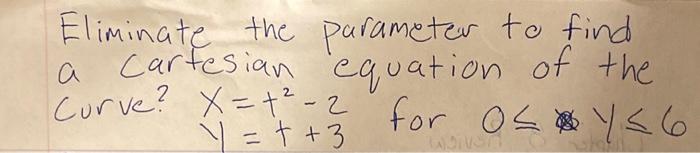 Eliminate the parameter to find
a Cartesian equation of the
Curve? X = t² - 2
Y = t + 3 for 0 ≤ Y ≤ 6